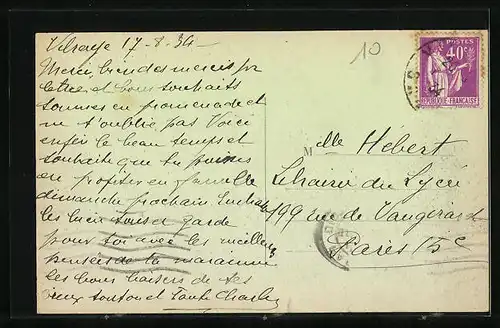 17-8-34
10
Merci, bien des mercis pr
lettre et bons souhaits
sommes en promenade et
ne t'oublie pas Voici
enfin le beau temps et
souhaite que tu puisses
en profiter en famille
dimanche prochain
les bien tous et garde
pour toi avec les meilleures
pensées de ta marraine
les bons baisers de tes
vieux tonton et Tante
POSTES
40c
REPUBLIQUE FRANÇAISE
Mlle Hébert
Librairie du Lycée
199 rue de Vaugirard
Paris 15e